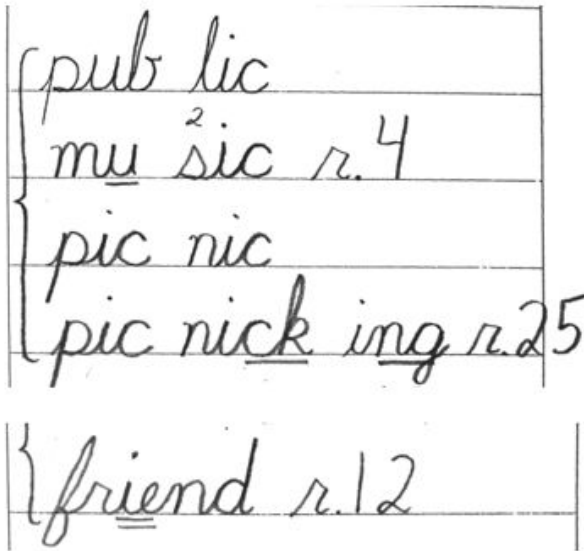 pub lic
mu ²sic r. 4
pic nic
pic nick ing r. 25
friend r. 12